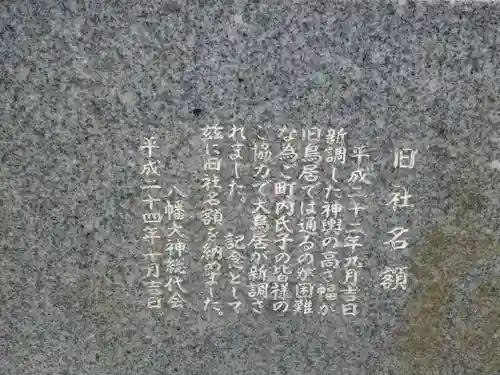 旧社名額
平成二十二年九月吉日
新調した神輿の高さ幅が
旧鳥居では通るのが困難
な為ご町内氏子の皆様の
ご協力で大鳥居が新調さ
れました。 記念として
茲に旧社名額を納めました。
八幡大神総代会
平成二十四年十月吉日